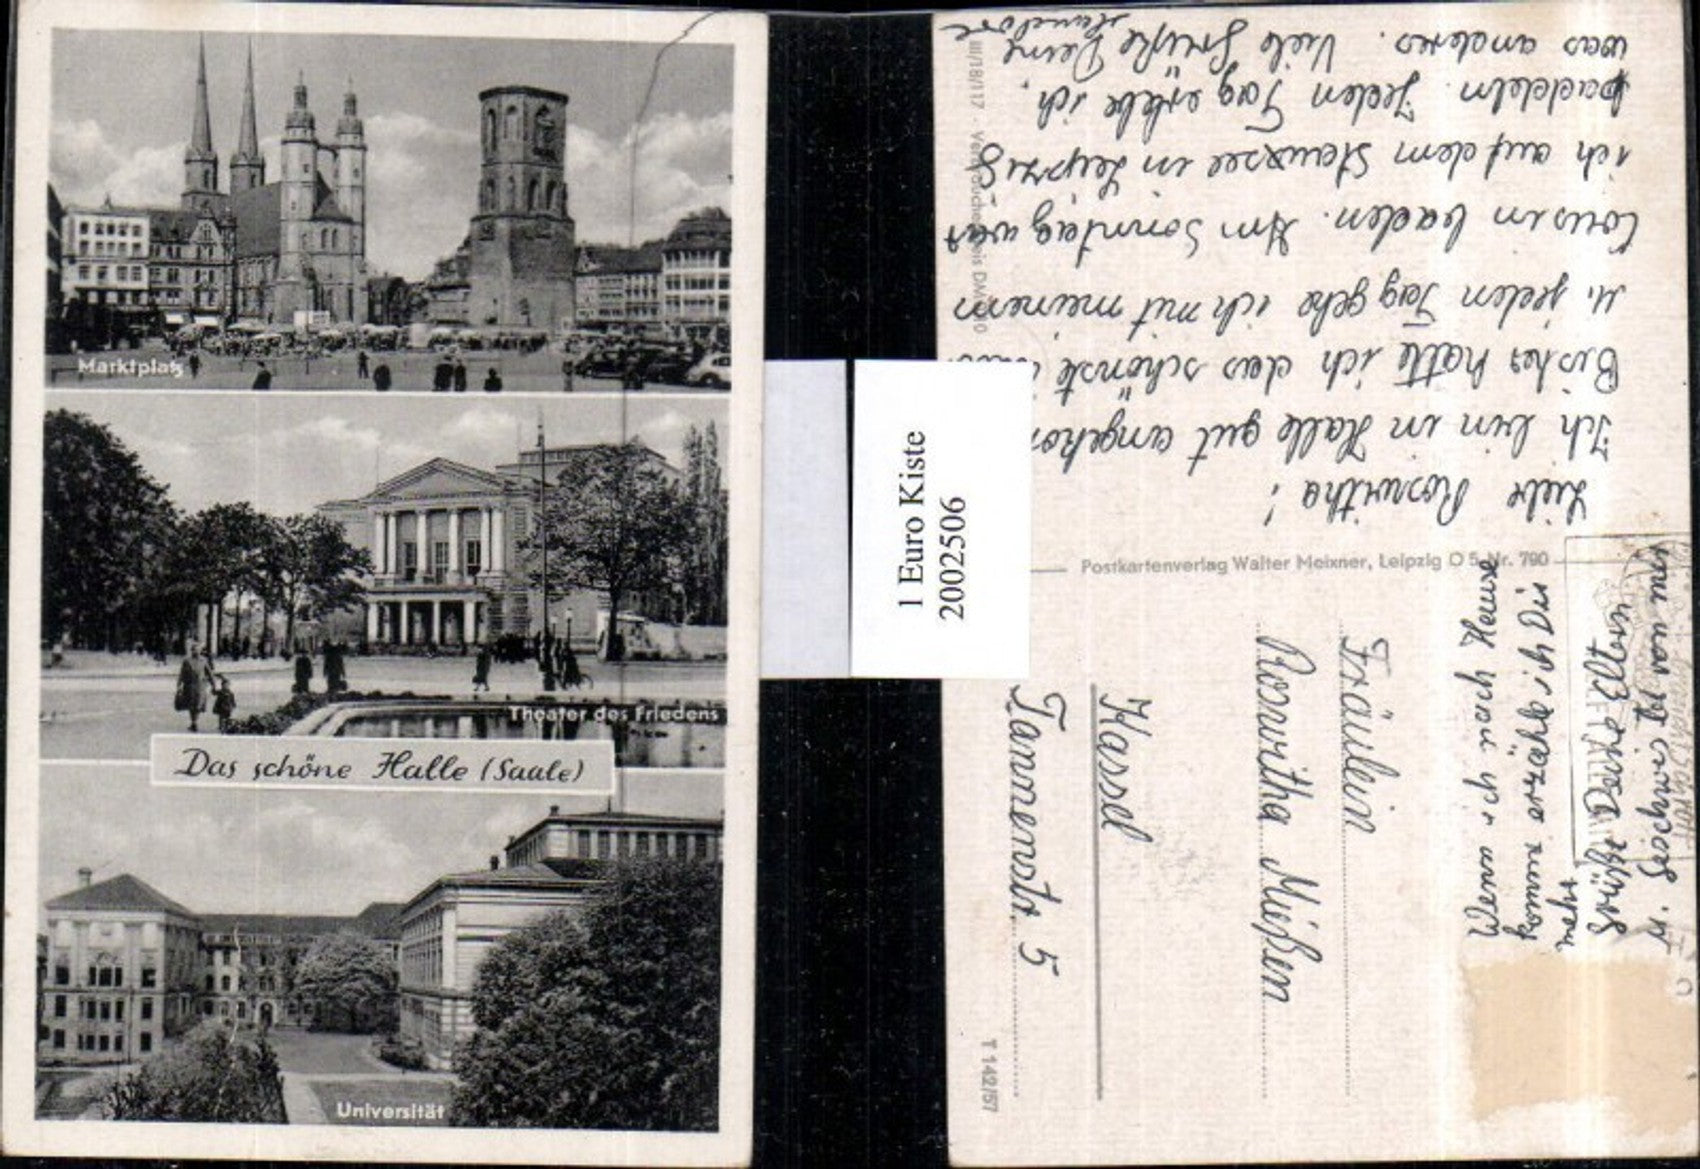 Marktplatz
Theater des Friedens
Das schöne Halle (Saale)
Universität
1 Euro Kiste
2002506
Liebe Roswitha!
Ich bin in Halle gut
Bisher hatte ich das schönste
u. jeden Tag gehe ich mit meinem
Cousin baden. Am Sonntag war
ich auf dem Stausee in Leipzig
paddeln. Jeden Tag erlebe ich
was anderes. Viele Grüße Deine
Hannelore
Postkartenverlag Walter Meixner, Leipzig O 5 Nr. 790
III/18/117
Wenn ich nach Hause
komme erzähle ich Dir
mehr.
Grüße Deine Eltern
u. Geschwister von mir
Fräulein
Roswitha Mießen
Kassel
Tannenstr. 5
T 142/57